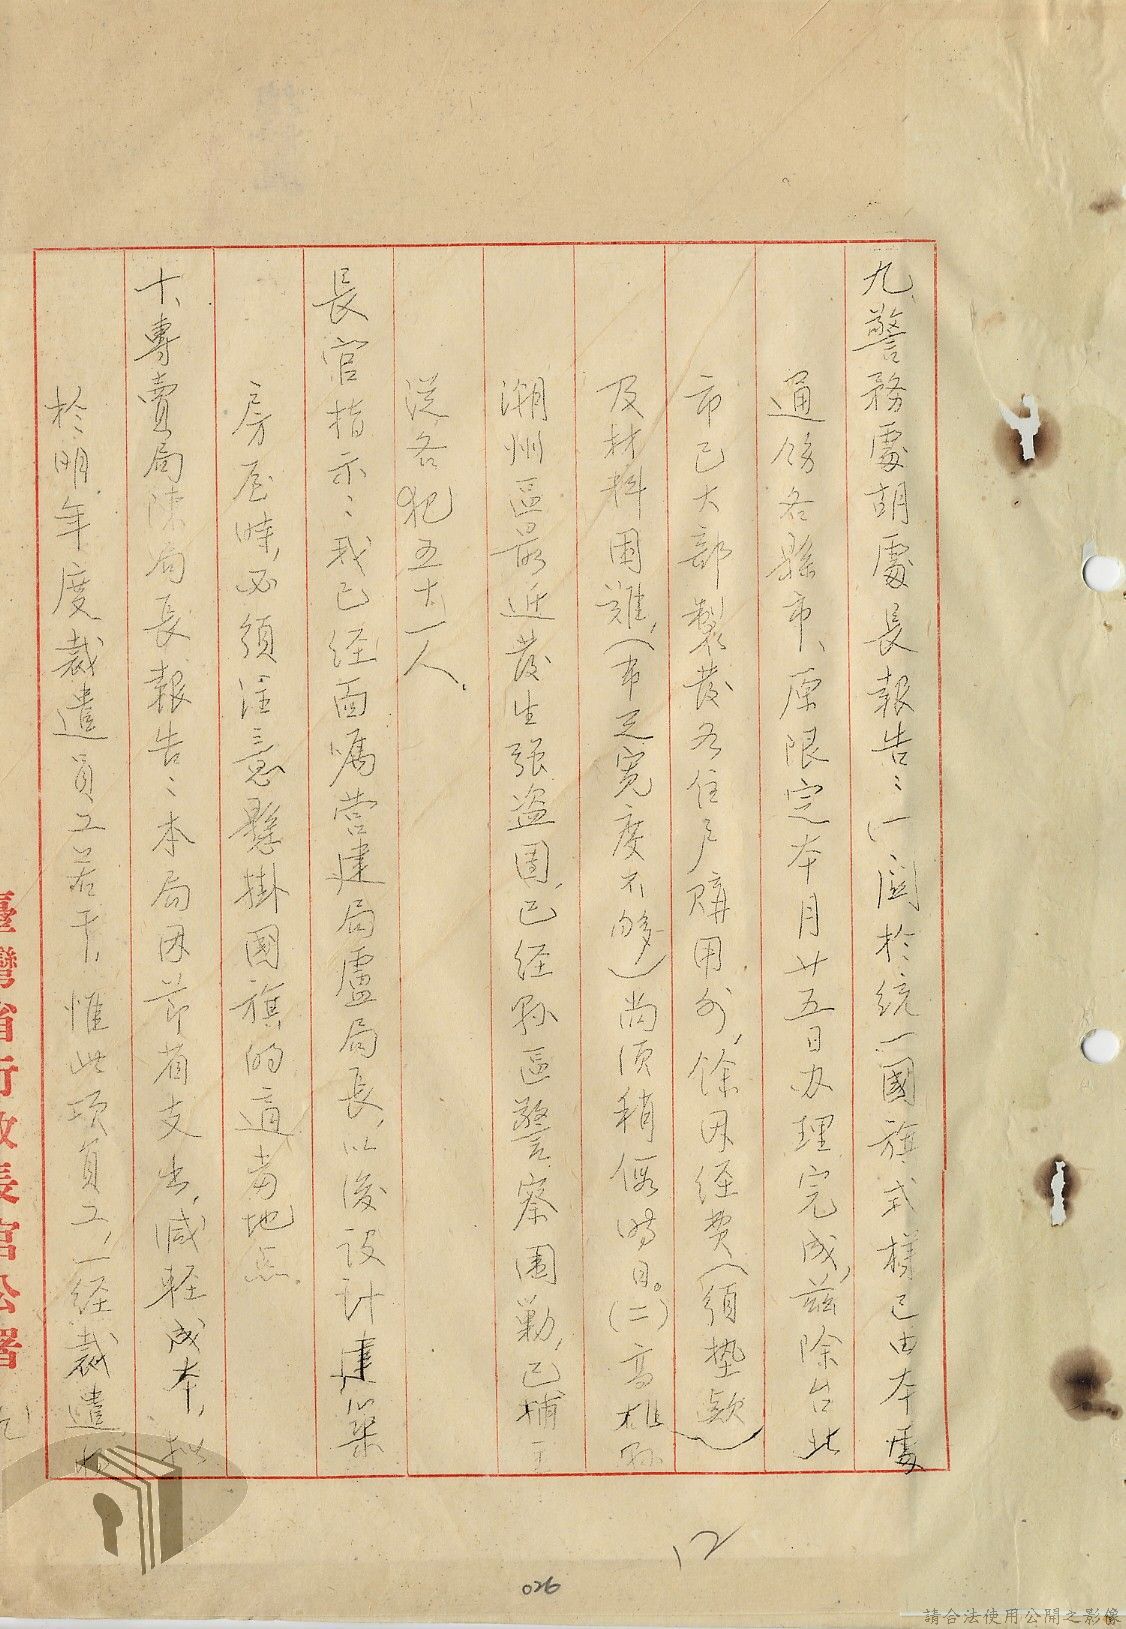 九、警務處胡處長報告：(一)關於統一國旗式樣已由本處
通飭各縣市、原限定本月廿五日办理完成，兹除台北
市已大部製發各住戶購用外，餘因經費(須墊款)
及材料困難，(布疋寬度不够)尚須稍假時日。(二)高雄縣
潮州區最近發生强盗團，已經縣區警察圍勦，已捕主
從各犯五十一人。
長官指示：我已经面嘱营建局盧局長，以後设计建築
房屋時，必須注意懸掛國旗的適当地点。
十、專賣局陳局長報告：本局因節省支出，减轻成本，拟
於明年度裁遣員工若干，惟此項員工，一经裁遣
臺灣省行政長官公署
12
026
請合法使用公開之影像